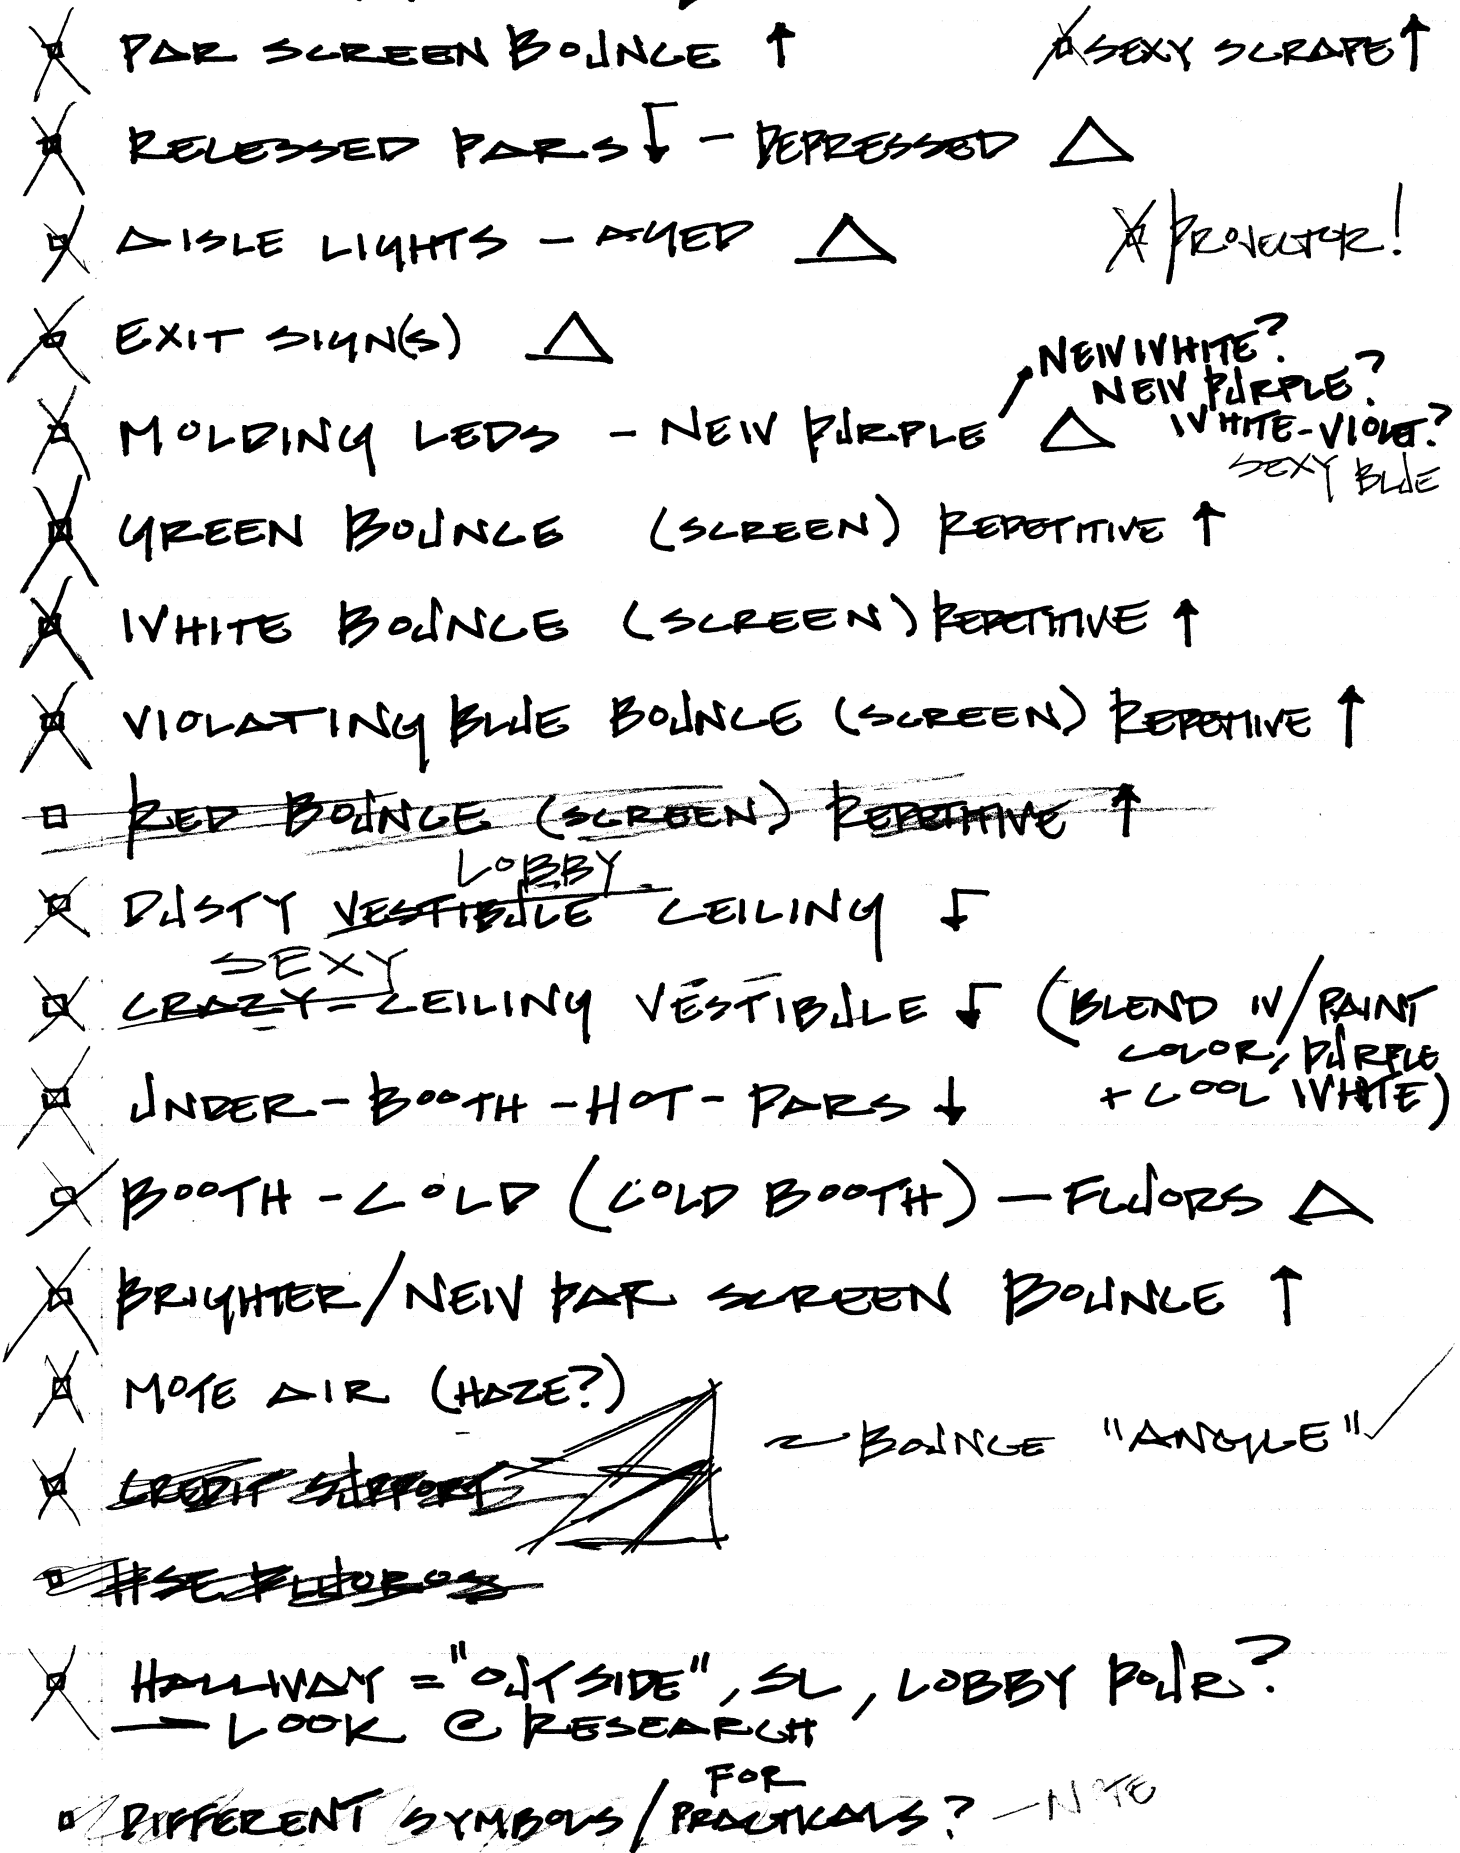 PAR SCREEN BOUNCE ↑
SEXY SCRAPE ↑
RELESSED PARS ↓ - DEPRESSED △
AISLE LIGHTS - AGED △
PROJECTOR!
EXIT SIGN(S) △
NEW WHITE?
NEW PURPLE?
MOLDING LEDS - NEW PURPLE △
WHITE-VIOLET?
SEXY BLUE
GREEN BOUNCE (SCREEN) REPETITIVE ↑
WHITE BOUNCE (SCREEN) REPETITIVE ↑
VIOLATING BLUE BOUNCE (SCREEN) REPETITIVE ↑
RED BOUNCE (SCREEN) REPETITIVE ↑
LOBBY
DUSTY VESTIBULE CEILING ↓
SEXY
CRAZY - CEILING VESTIBULE ↓ (BLEND W/PAINT
COLOR, PURPLE
+ COOL WHITE)
UNDER-BOOTH-HOT-PARS ↓
BOOTH - COLD (COLD BOOTH) - FLUORS △
BRIGHTER/NEW PAR SCREEN BOUNCE ↑
MOTE AIR (HAZE?)
~BOUNCE "ANGLE" ✓
CREDIT SUPPORT
HALLWAY = "OUTSIDE", SL, LOBBY POUR?
→ LOOK @ RESEARCH
FOR
DIFFERENT SYMBOLS/PRACTICALS? - NOTE